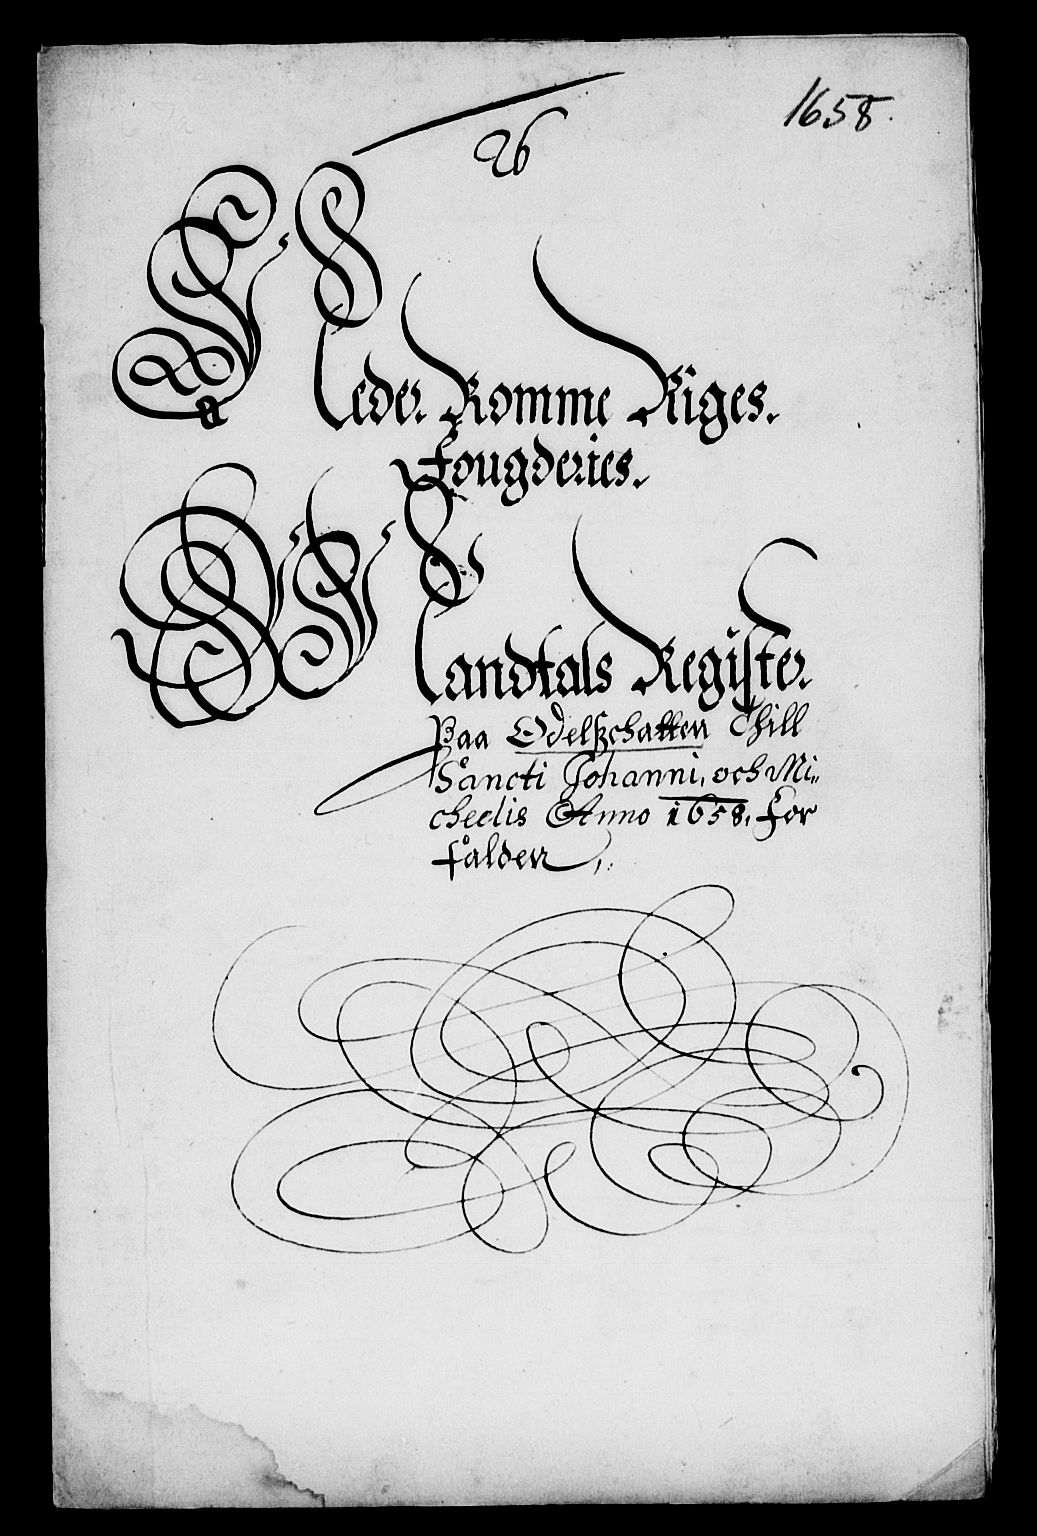 1658.
26
Neder Romme Riges.
Fougderies.
Mandtals Register
Paa Odelsschatten Thill
Sancti Johanni, och Mi,,
cheelis Anno 1658. for
falden,.